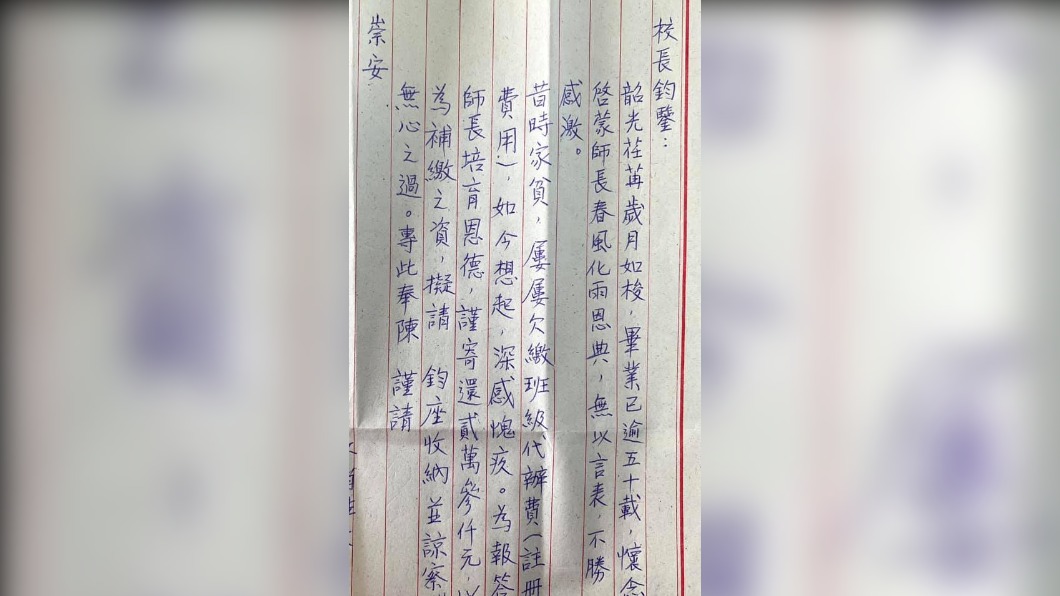 校長鈞鑒：
韶光荏苒歲月如梭，畢業已逾五十載，懷念
啓蒙師長春風化雨恩典，無以言表，不勝
感激。
昔時家貧，屢屢欠繳班級代辦費（註冊
費用），如今想起，深感愧疚。為報答
師長培育恩德，謹寄還貳萬參仟元，以
為補繳之資，擬請 鈞座收納並諒察
無心之過。專此奉陳 謹請
崇安